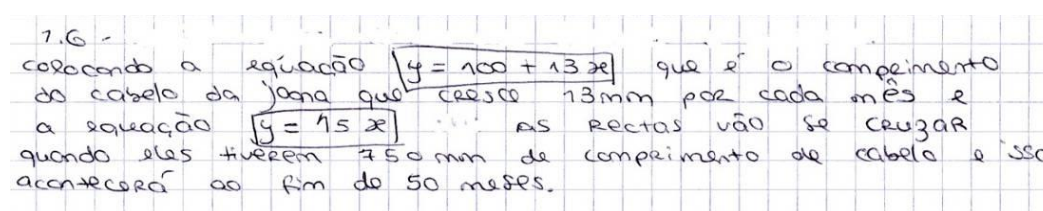 1.6 -
colocando a equação y = 100 + 13x que é o comprimento
do cabelo da Joana que cresce 13mm por cada mês e
a equação y = 15x as rectas vão se cruzar
quando eles tiverem 750mm de comprimento de cabelo e isso
acontecerá ao fim de 50 meses.